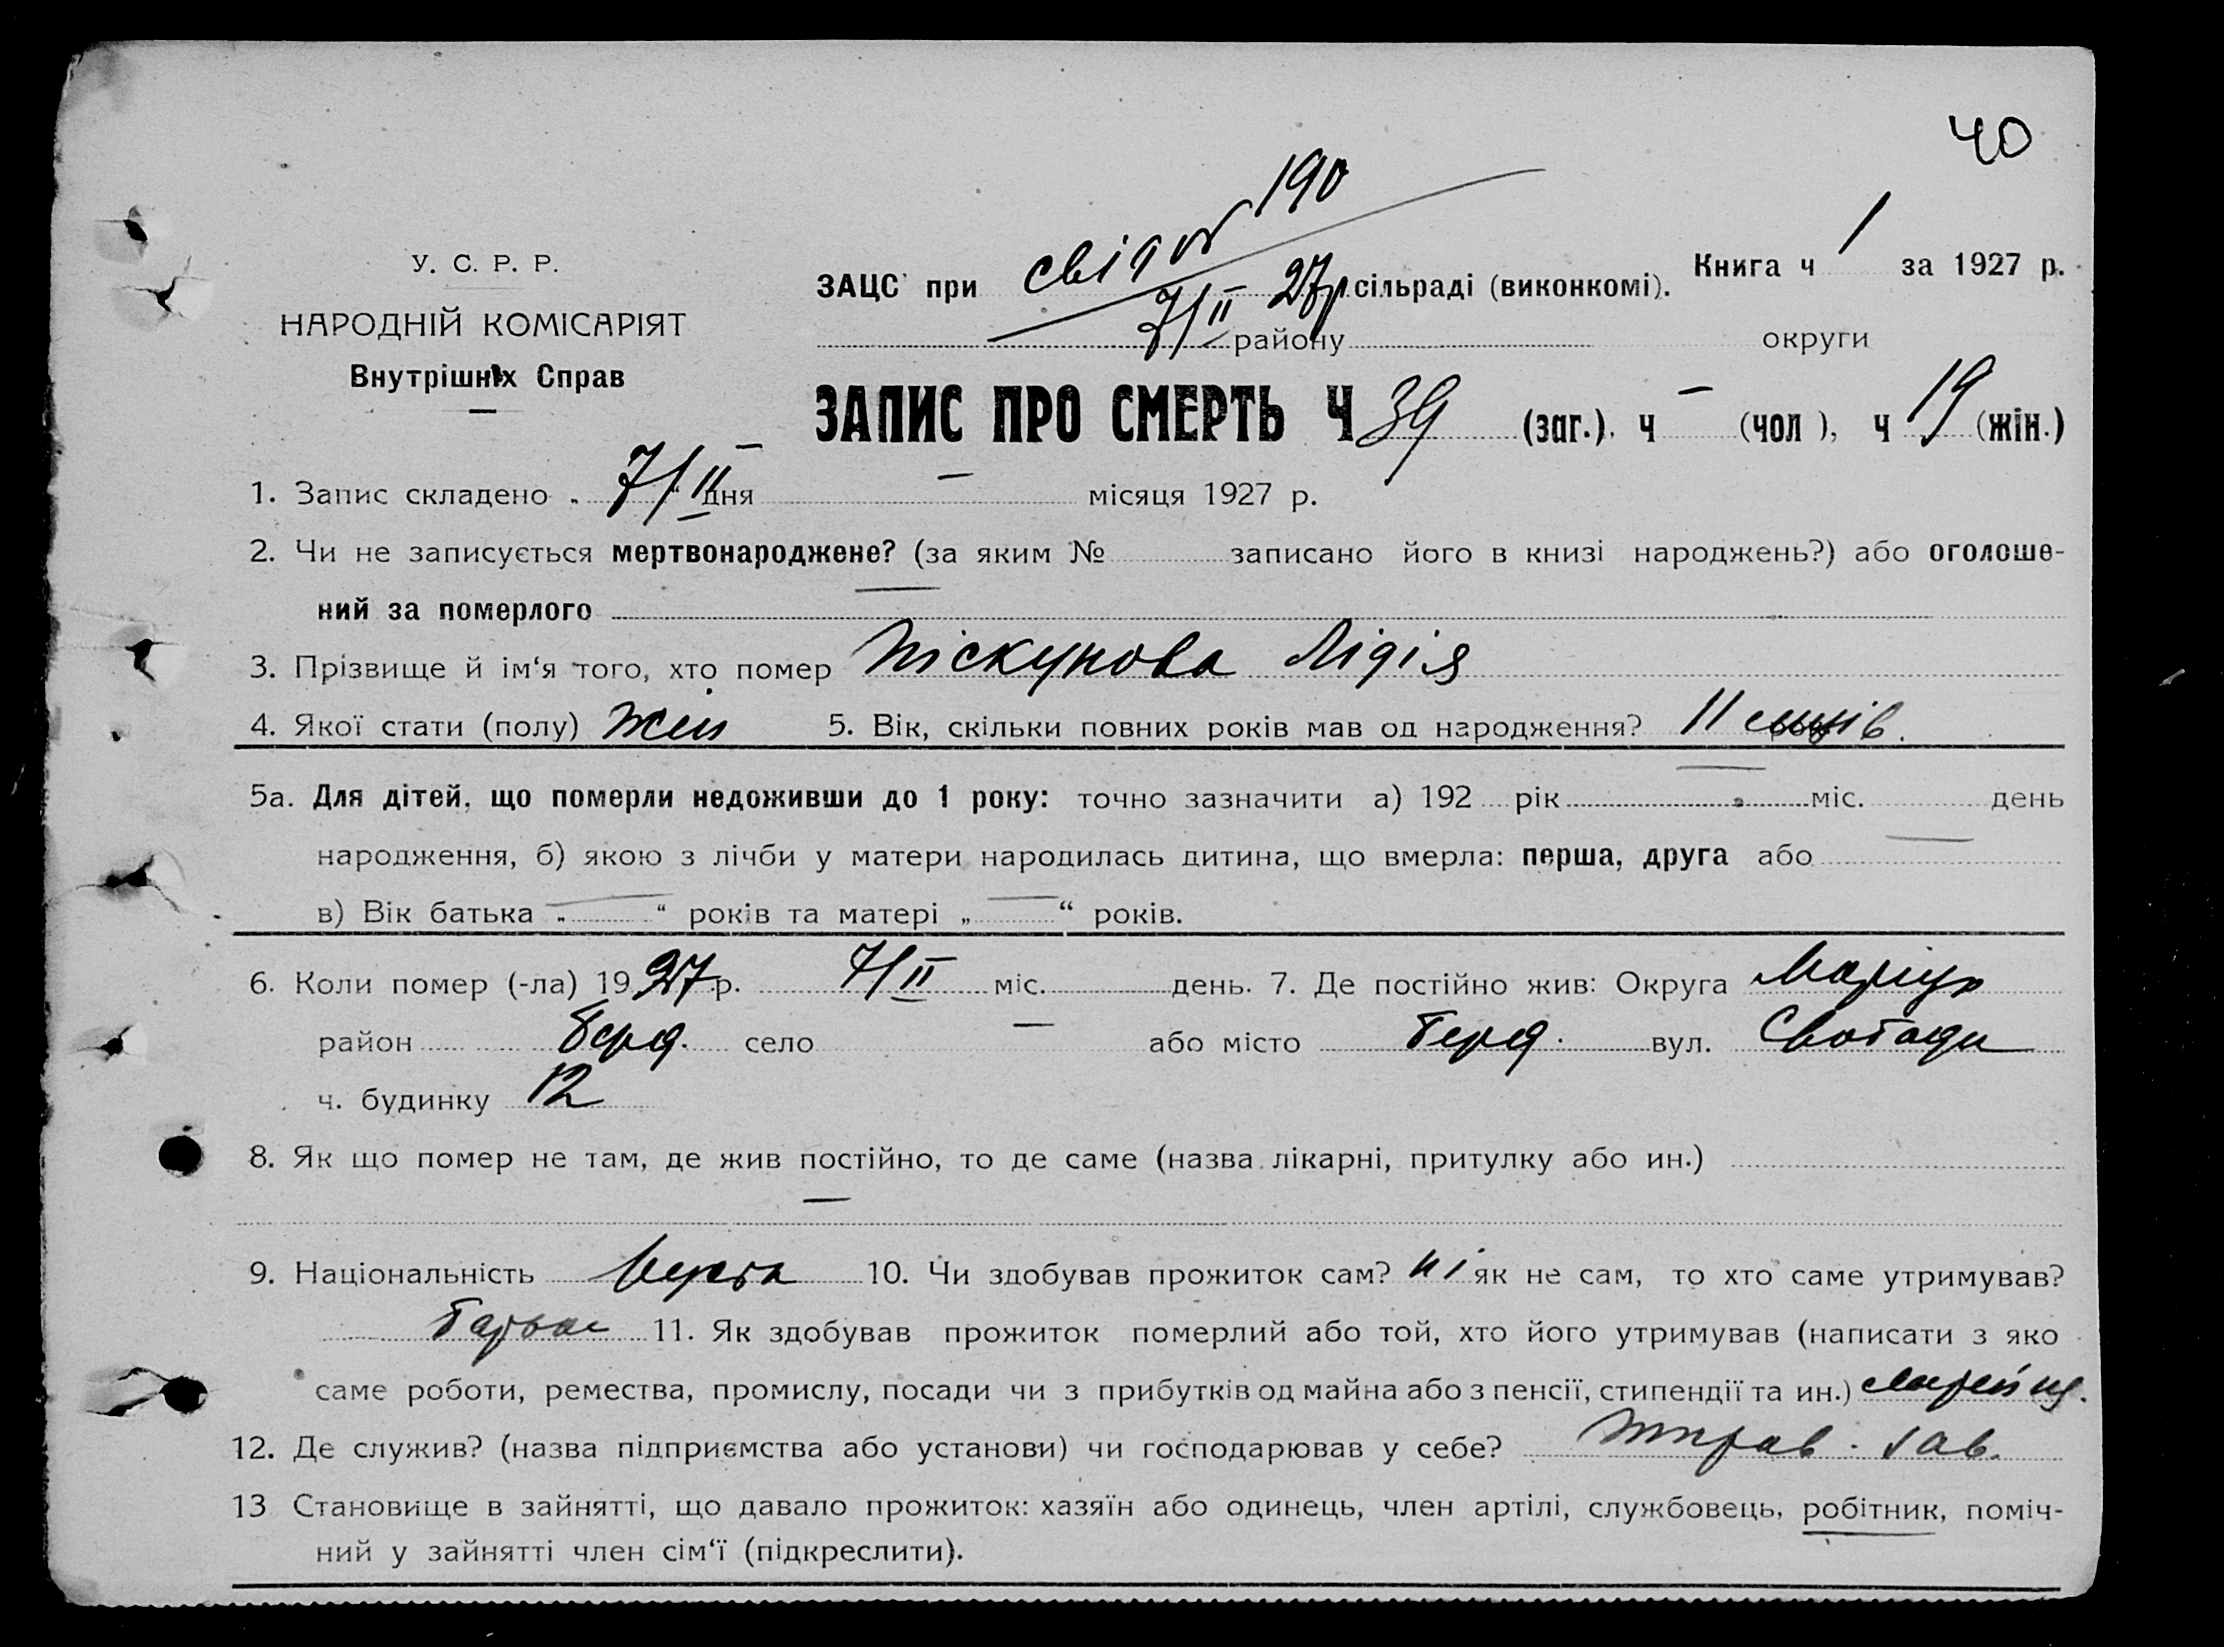 40
свід № 190
У. С. Р. Р.
НАРОДНІЙ КОМІСАРІЯТ
Внутрішніх Справ
ЗАЦС при 7/II 27р сільраді (виконкомі). Книга ч 1 за 1927 р.
району округи
ЗАПИС ПРО СМЕРТЬ Ч 39 (заг.). ч – (чол ), ч 19 (жін.)
1. Запис складено „ 7/II дня – місяця 1927 р.
2. Чи не записується мертвонароджене? (за яким № записано його в книзі народжень?) або оголоше-
ний за померлого —
3. Прізвище й ім‘я того, хто помер Піскунова Лідія
4. Якої стати (полу) Жін 5. Вік, скільки повних років мав од народження? 11 місяців.
5а. Для дітей, що померли недоживши до 1 року: точно зазначити а) 192 рік — міс. день
народження, б) якою з лічби у матери народилась дитина, що вмерла: перша, друга або —
в) Вік батька „ — “ років та матері „ — “ років.
6. Коли помер (-ла) 1927 р. 7/II міс. день. 7. Де постійно жив: Округа Маріуп
район Берд. село — або місто Берд. вул. Свободи
ч. будинку 12
8. Як що помер не там, де жив постійно, то де саме (назва лікарні, притулку або ин.)
—
9. Національність 10. Чи здобував прожиток сам? ні як не сам, то хто саме утримував?
батьки 11. Як здобував прожиток померлий або той, хто його утримував (написати з яко
саме роботи, ремества, промислу, посади чи з прибутків од майна або з пенсії, стипендії та ин.)
12. Де служив? (назва підприємства або установи) чи господарював у себе? зав.
13 Становище в зайнятті, що давало прожиток: хазяїн або одинець, член артілі, службовець, робітник, поміч-
ний у зайнятті член сім‘ї (підкреслити).